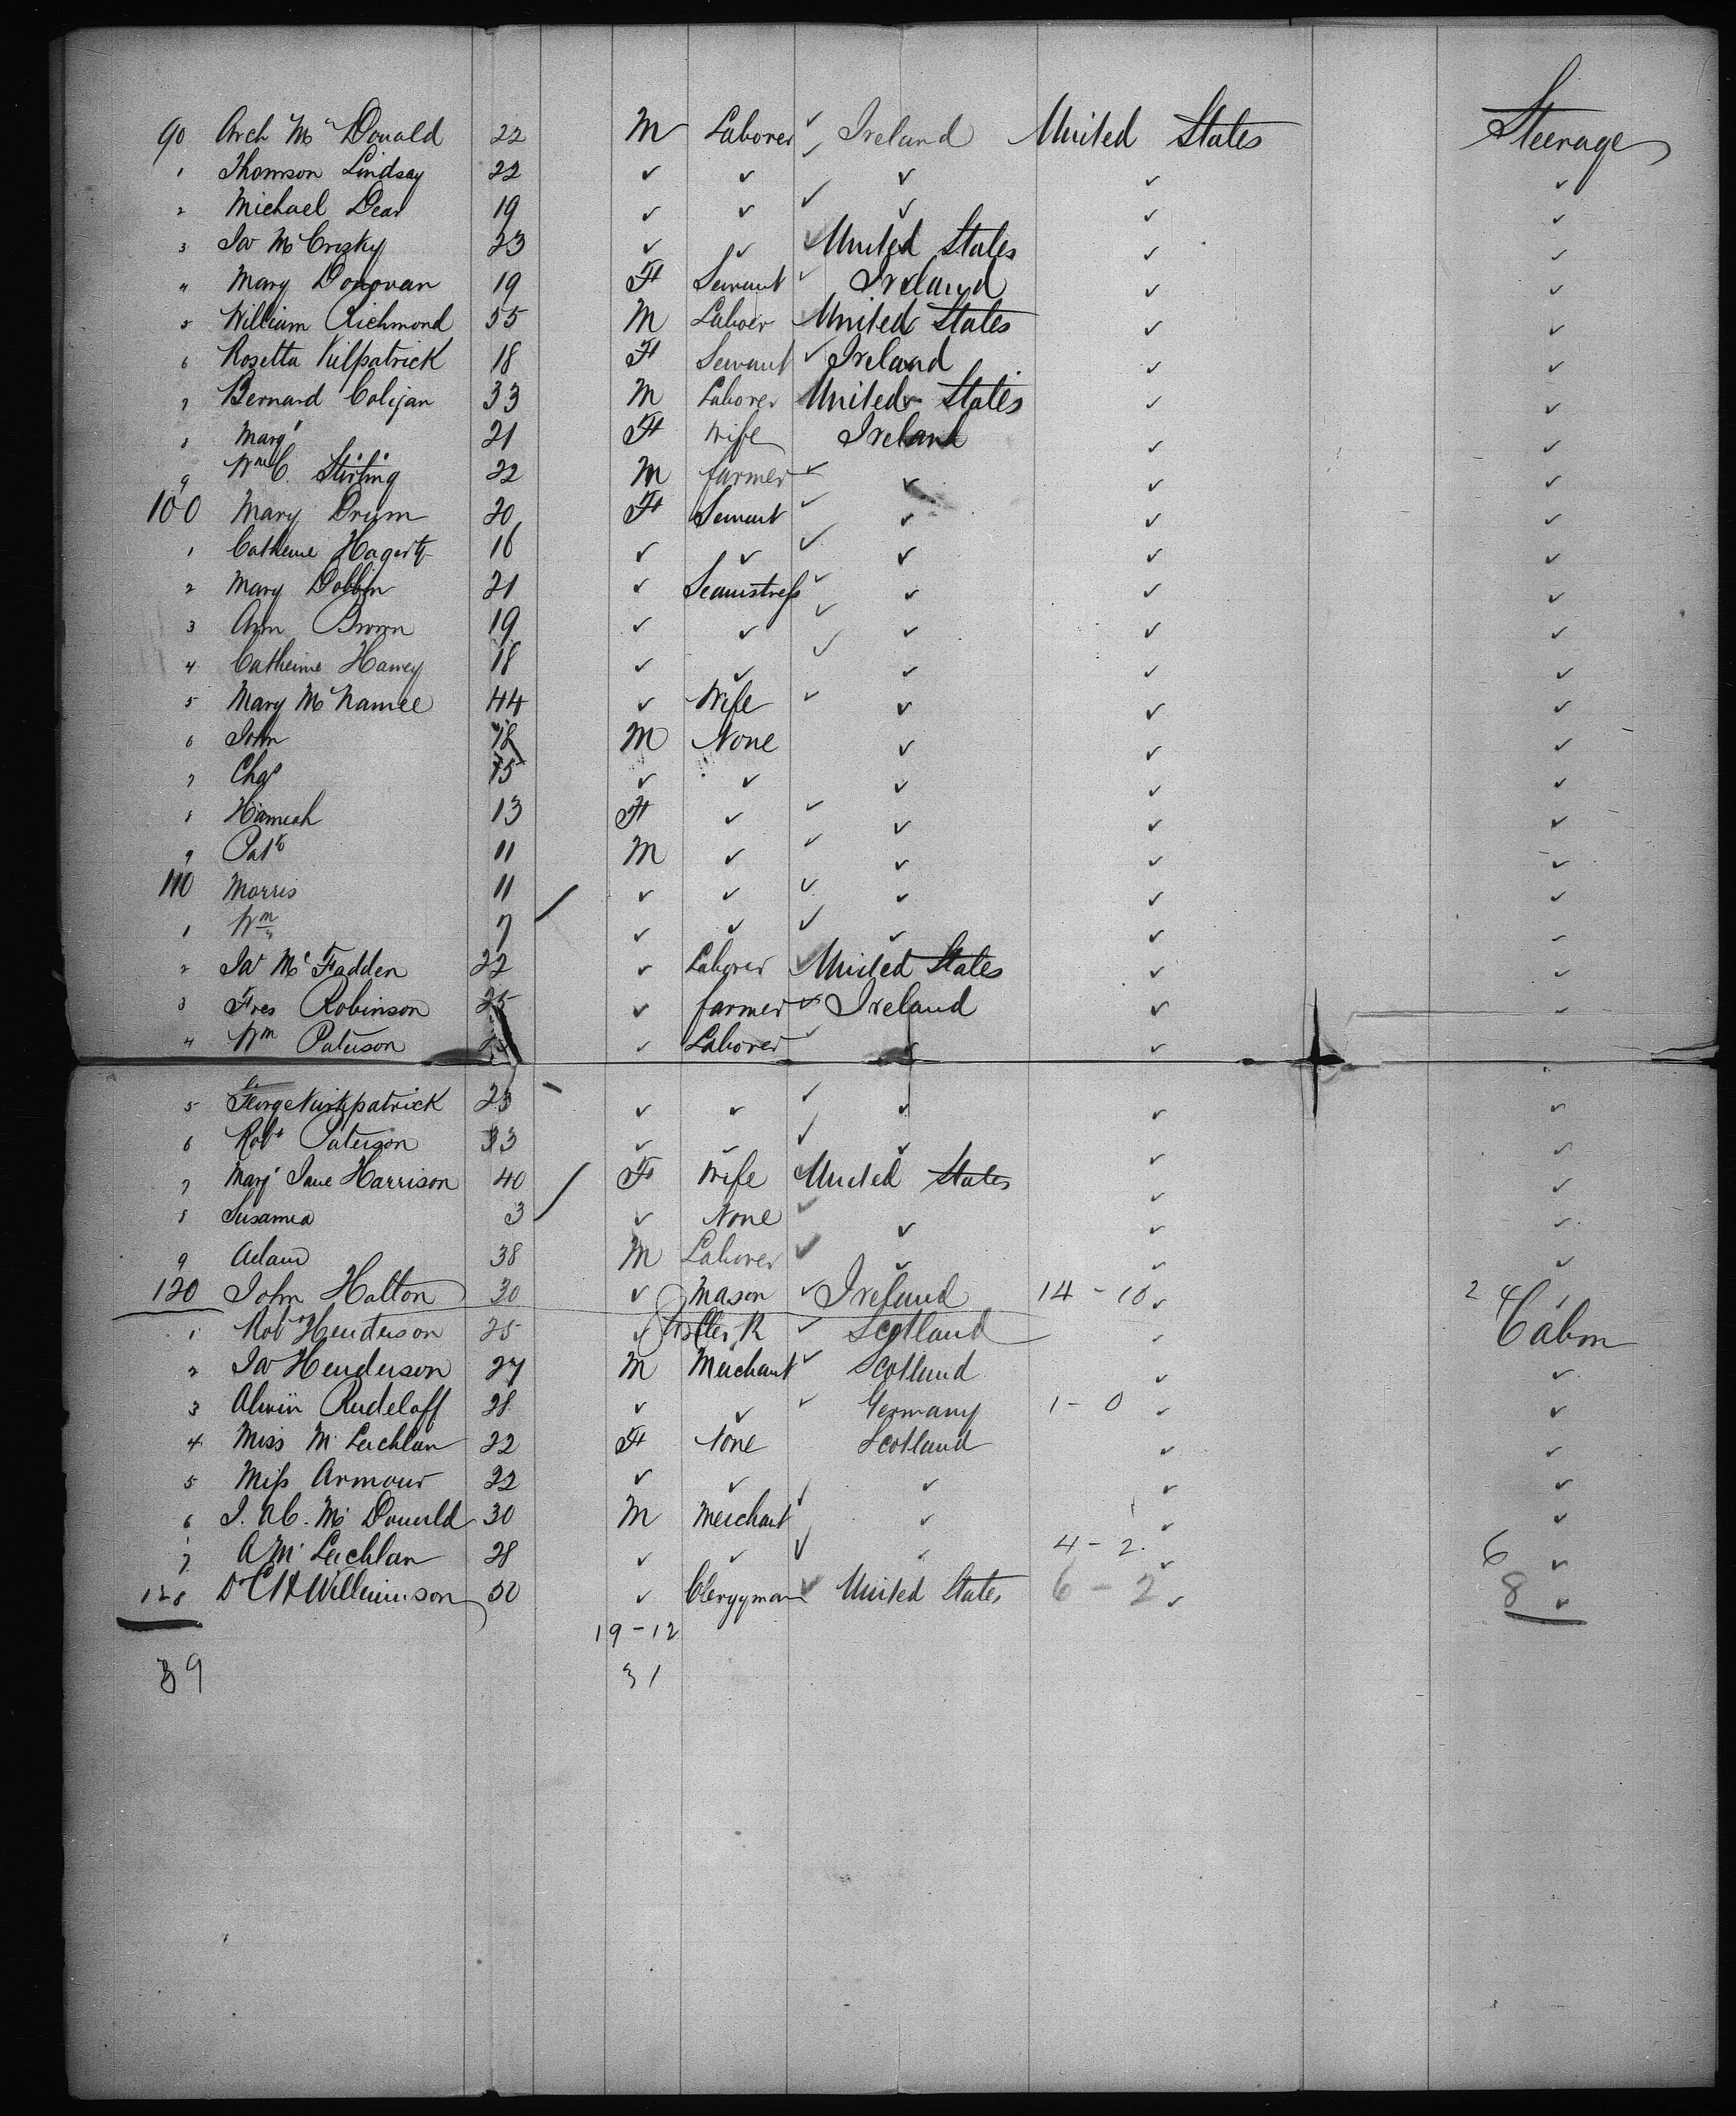 90 Arch Mc Donald 22 M Laborer ✓ Ireland United States Steerage
1 Thomson Lindsay 22 ✓ ✓ ✓ ✓ ✓ ✓
2 Michael Dear 19 ✓ ✓ ✓ ✓ ✓ ✓
3 Jas McCrosky 23 ✓ ✓ ✓ United States ✓ ✓
4 Mary Donovan 19 F Servant ✓ Ireland ✓ ✓
5 William Richmond 55 M Laboer United States ✓ ✓
6 Rosetta Kilpatrick 18 F Servant ✓ Ireland ✓ ✓
7 Bernard Coligan 33 M Laborer United States ✓ ✓
8 Margt 21 F Wife Ireland ✓ ✓
9 Wm C. Stirling 22 M farmer ✓ ✓ ✓ ✓
100 Mary Drum 20 F Servant ✓ ✓ ✓ ✓
1 Catherine Hagerty 16 ✓ ✓ ✓ ✓ ✓ ✓
2 Mary Dobbin 21 ✓ Seamstress ✓ ✓ ✓ ✓
3 Ann Brown 19 ✓ ✓ ✓ ✓ ✓ ✓
4 Catherine Harvey 18 ✓ ✓ ✓ ✓ ✓ ✓
5 Mary McNamee 44 ✓ Wife ✓ ✓ ✓ ✓
6 John 18 M None ✓ ✓ ✓
7 Chas 15 ✓ ✓ ✓ ✓ ✓
8 Hannah 13 F ✓ ✓ ✓ ✓ ✓
9 Patk 11 M ✓ ✓ ✓ ✓ ✓
110 Morris 11 ✓ ✓ ✓ ✓ ✓ ✓
1 Wm 7 ✓ ✓ ✓ ✓ ✓ ✓
2 Jas Mc Fadden 22 ✓ Laborer ✓ United States ✓ ✓
3 Fres Robinson 25 ✓ farmer ✓ Ireland ✓ ✓
4 Wm Paterson ✓ Laborer ✓ ✓ ✓
5 George Kirkpatrick 23 ✓ ✓ ✓ ✓ ✓ ✓
6 Robt Paterson 33 ✓ ✓ ✓ ✓ ✓ ✓
7 Mary Jane Harrison 40 F Wife United States ✓ ✓
8 Susanna 3 ✓ None ✓ ✓ ✓ ✓
9 Adam 38 M Laborer ✓ ✓ ✓ ✓
120 John Hatton 30 ✓ Mason ✓ Ireland 14 - 10 ✓ 24
1 Robt Henderson 25 ✓ Clerk ✓ Scotland ✓ Cabin
2 Jas Henderson 27 M Merchant ✓ Scotland ✓ ✓
3 Alwin Rudeloff 28 ✓ ✓ ✓ Germany 1 - 0 ✓ ✓
4 Miss McLachlan 22 F None Scotland ✓ ✓
5 Miss Armour 22 ✓ ✓ ✓ ✓ ✓ ✓
6 Mc Donald 30 M Merchant ✓ ✓ ✓ ✓
7 A Mc Lachlan 28 ✓ ✓ ✓ ✓ 4 - 2 ✓ 6 ✓
128 Dr C H Williamson 50 ✓ Clergyman ✓ United States 6 - 2 ✓ 8 ✓
19 - 12
39 31